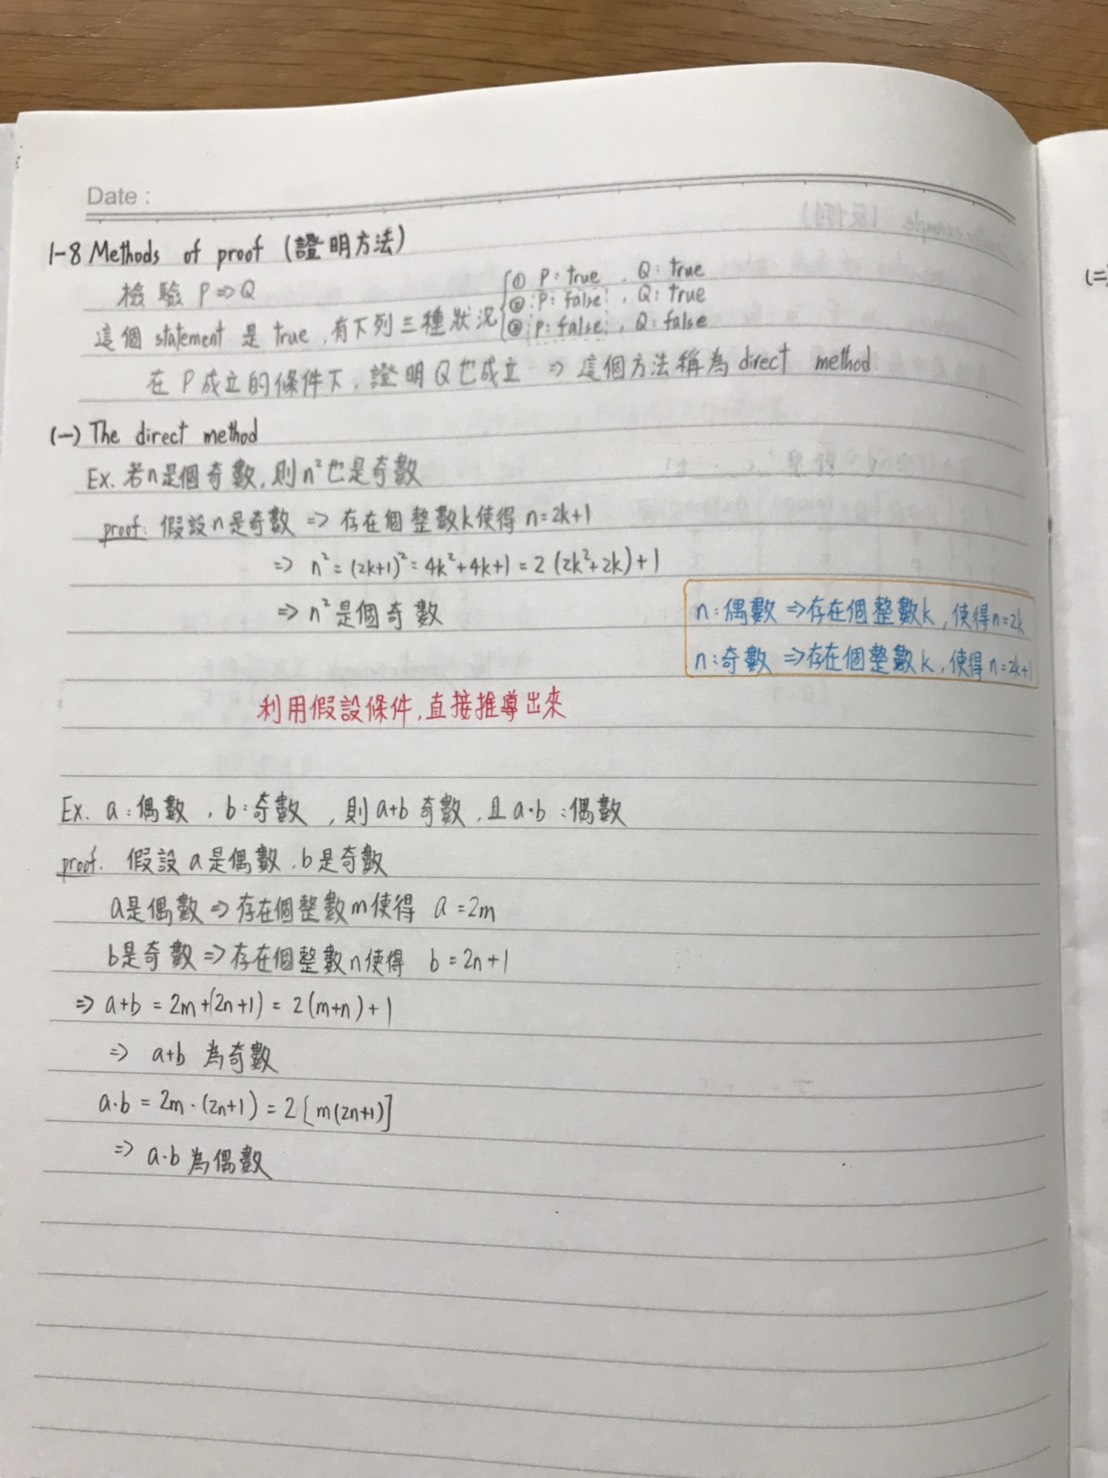 Date :
1-8 Methods of proof (證明方法)
檢驗 P⇒Q
① P: true , Q: true
② P: false , Q: true
這個 statement 是 true , 有下列三種狀況
③ P: false , Q: false
在 P 成立的條件下, 證明 Q 也成立 ⇒ 這個方法稱為 direct method.
(一) The direct method
Ex. 若n是個奇數, 則n²也是奇數
proof: 假設n是奇數 ⇒ 存在個整數k使得 n=2k+1
⇒ n² = (2k+1)² = 4k²+4k+1 = 2 (2k²+2k)+1
⇒ n²是個奇數
n:偶數 ⇒存在個整數k, 使得n=2k
n:奇數 ⇒存在個整數k, 使得 n=2k+1
利用假設條件, 直接推導出來
Ex. a:偶數 , b:奇數 , 則a+b 奇數, 且 a·b :偶數
proof. 假設 a是偶數, b是奇數
a是偶數 ⇒ 存在個整數m使得 a =2m
b是奇數 ⇒存在個整數n使得 b = 2n+1
⇒ a+b = 2m+(2n+1) = 2(m+n)+1
⇒ a+b 為奇數
a·b = 2m·(2n+1) = 2[m(2n+1)]
⇒ a·b 為偶數
(二)